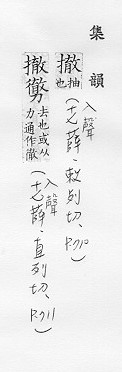 集韻
撤 抽也 入聲(十七薛·敕列切、P.710)
撤勶 去也或从力通作徹 入聲(十七薛·直列切、P.711)